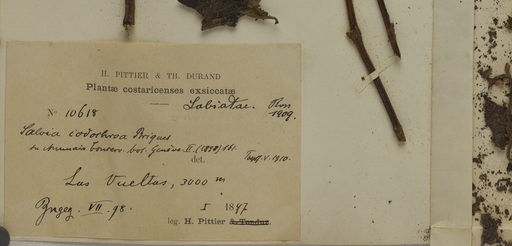 H. PITTIER & TH. DURAND
Plantæ costaricenses exsiccatæ
Nº 10618 Labiatae.
1809.
Salvia iodochroa Briquet
in Annuaire Conserv. bot. Genève II. (1898) 161.
det.
Las Vueltas, 3000 m
VII. 98. I 1897
leg. H. Pittier & Tonduz